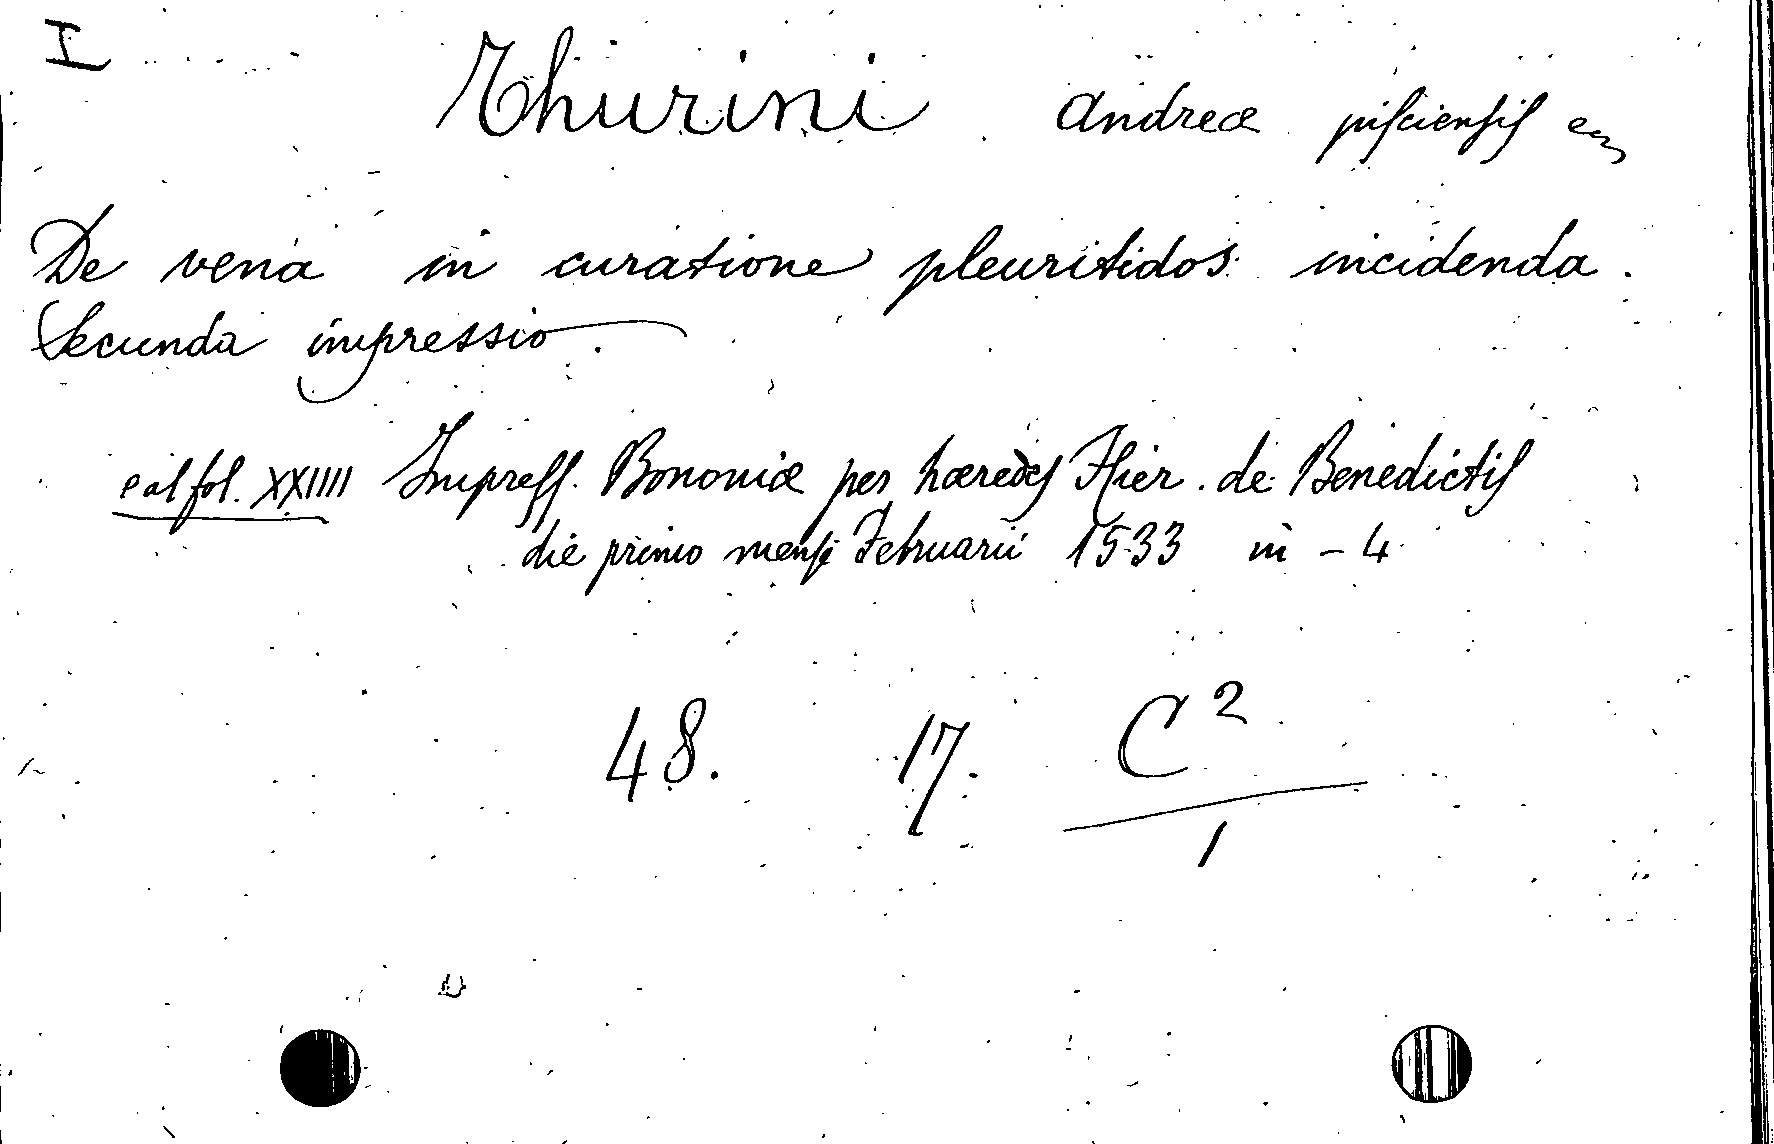 I
Thurini Andreæ piſcienſiſ
De vena in curatione pleuritidos incidenda.
Secunda impressio.
e al fol. XXIIII Impreſſ. Bononiæ per hæredeſ Hier. de Benedictiſ
die primo menſe Februarii 1533 in-4
48. 17. C 2
1